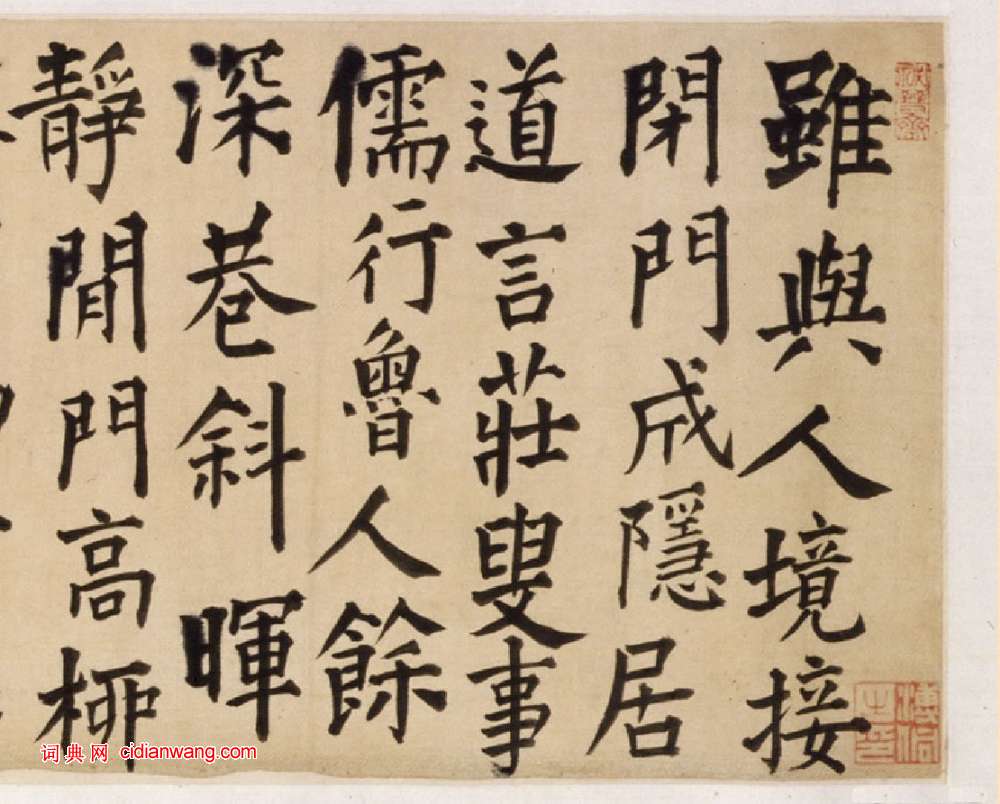 雖與人境接
閉門成隱居
道言莊叟事
儒行魯人餘
深巷斜暉
靜閒門高栁
詞典网 cidianwang.com